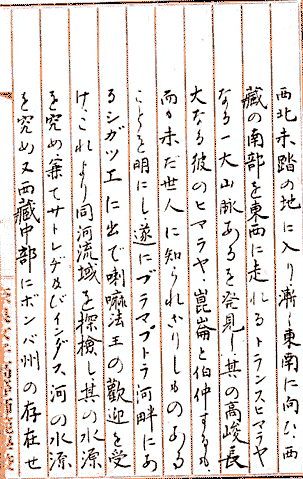 西北未踏の地に入り漸く東南に向ひ西
藏の南部を東西に走れるトランスヒマラヤ
なる一大山脈あるを発見し其の高峻長
大なる彼のヒマラヤ、崑崙と伯仲するも、
而か未だ世人に知られざりしものある
ことを明にし、遂にブラマプトラ河畔にあ
るシガツエに出で喇嘛法王の歡迎を受
けこれより同河流域を探検し其の水源
を究め兼てサトレヂ及インダス河の水源
を究め又西藏中部にボンバ州の存在せ